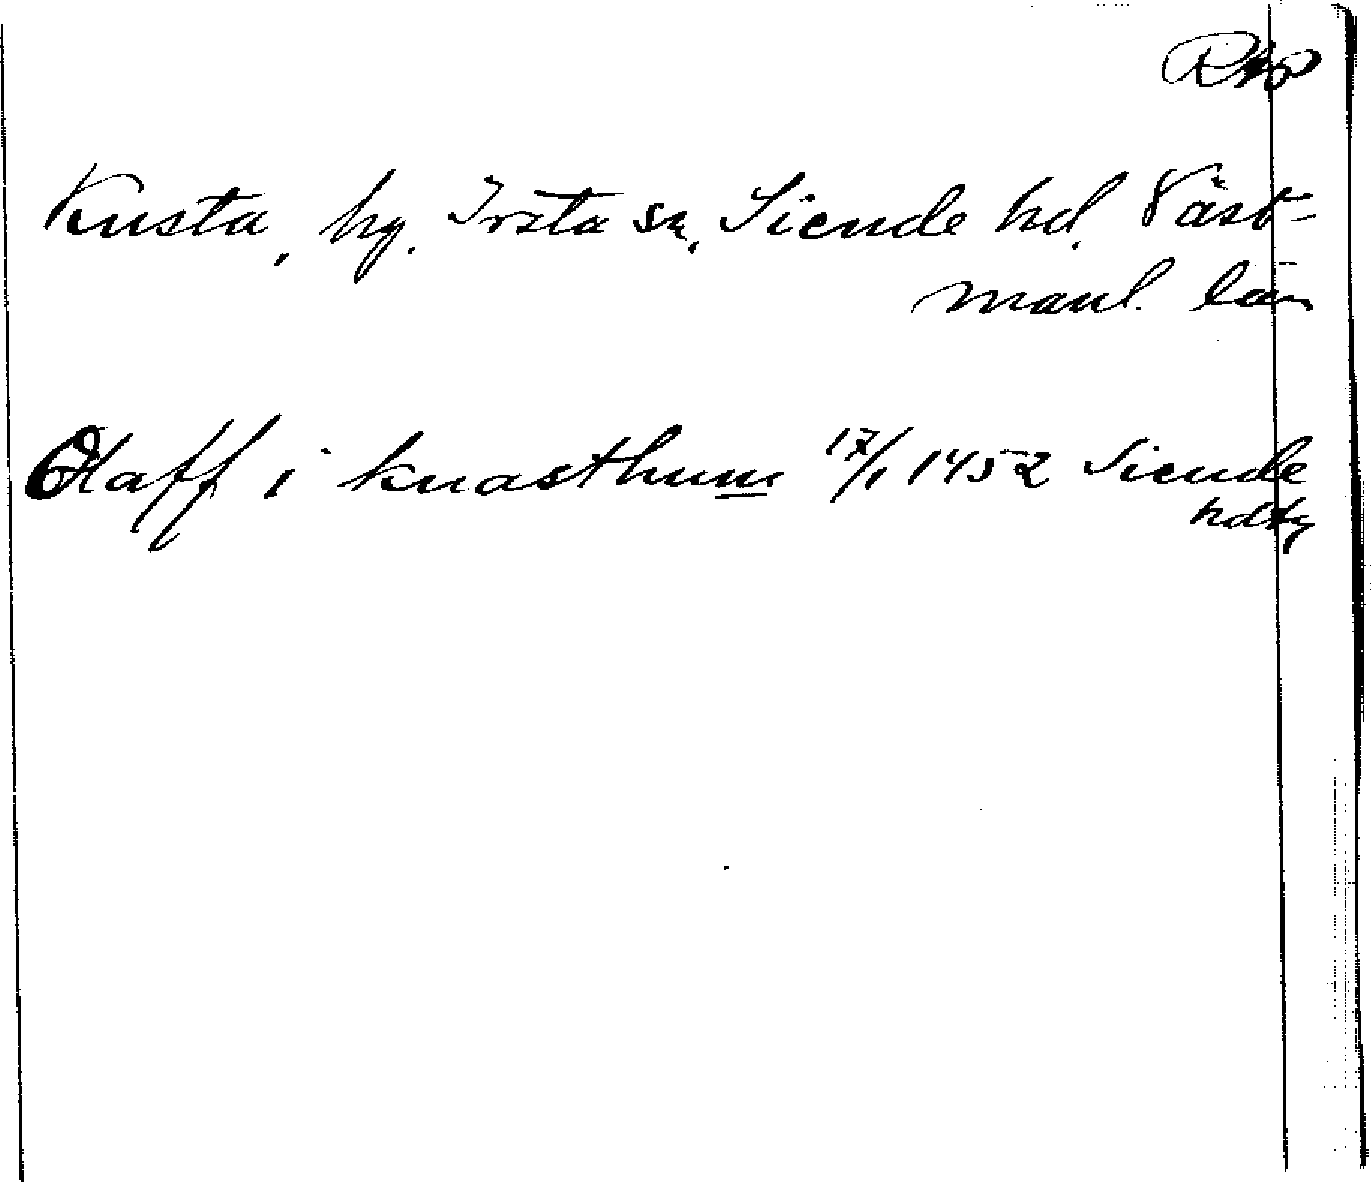 RAp
Knista, hg. Irsta sn, Siende hd, Väst-
manl. län
Olaff i knasthum 17/1 1452 Siende
hdtg